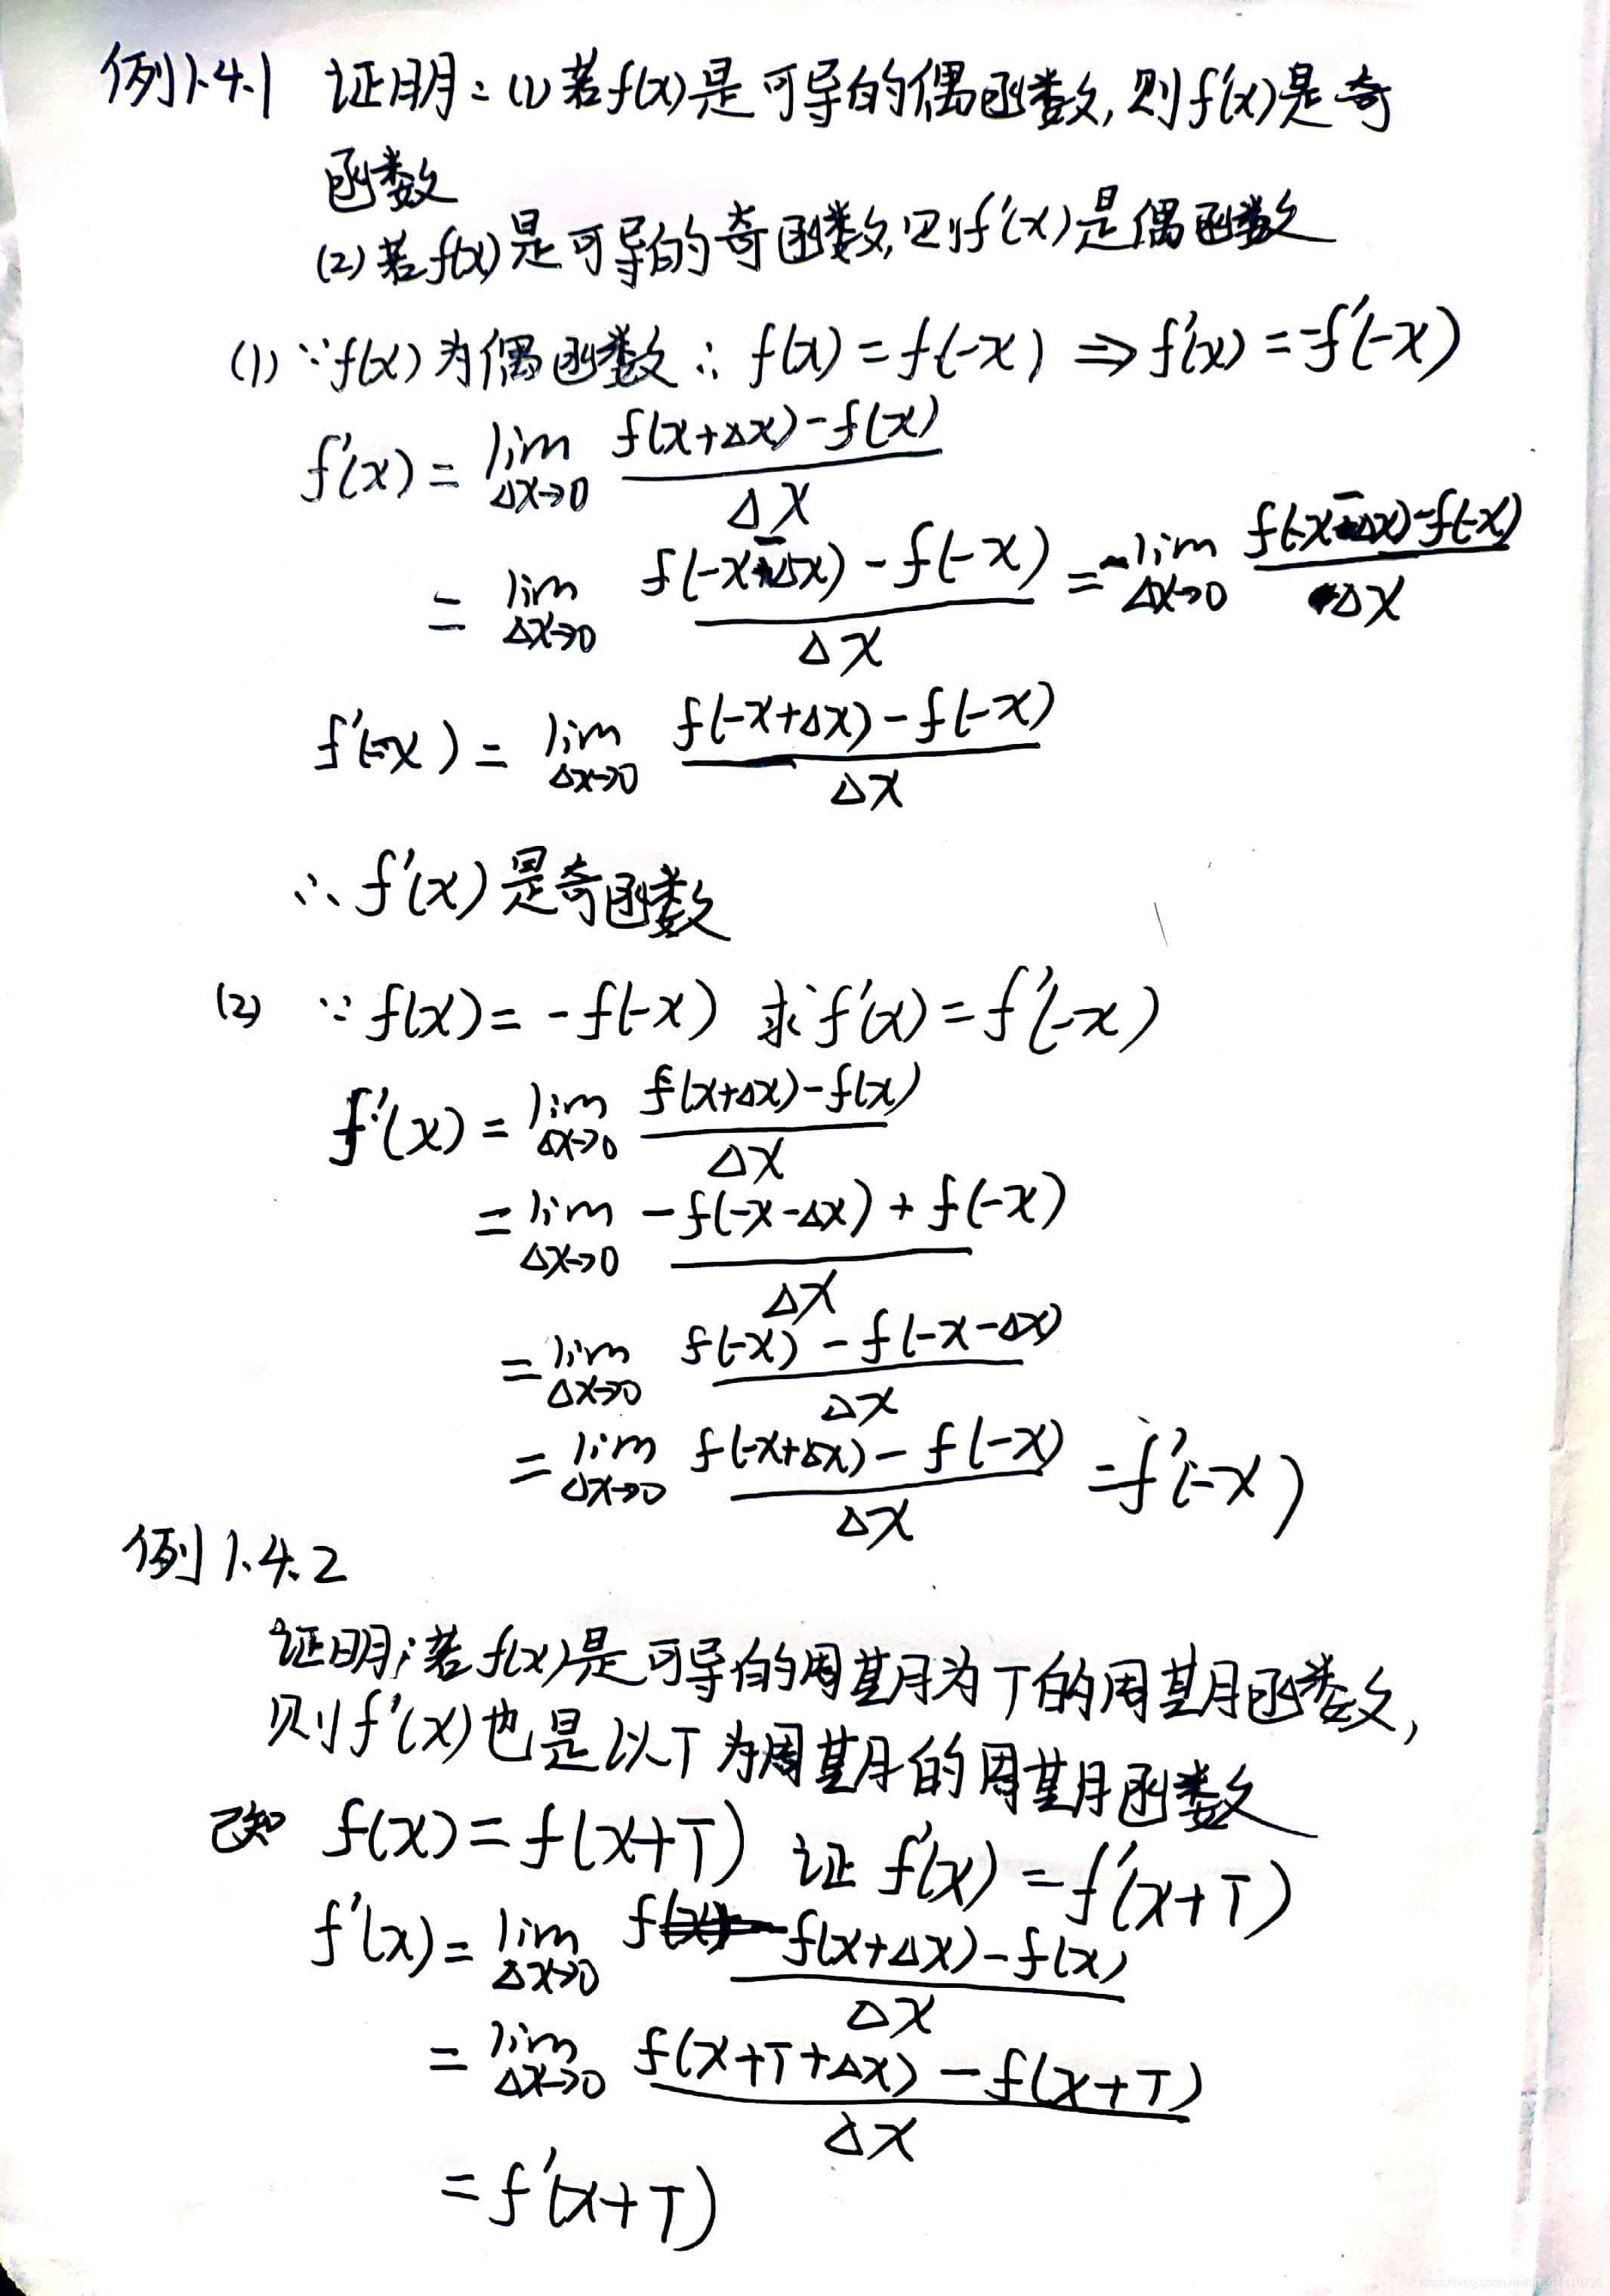 例1.4.1 证明:(1)若f(x)是可导的偶函数,则f'(x)是奇
函数
(2)若f(x)是可导的奇函数,则f'(x)是偶函数
(1) ∵f(x)为偶函数 ∴ f(x)=f(-x) ⇒ f'(x)=-f'(-x)
f'(x) = lim Δx→0 (f(x+Δx)-f(x))/Δx
= lim Δx→0 (f(-x-Δx)-f(-x))/Δx = -lim Δx→0 (f(-x-Δx)-f(-x))/Δx
f'(-x) = lim Δx→0 (f(-x+Δx)-f(-x))/Δx
∴ f'(x)是奇函数
(2) ∵ f(x)=-f(-x) 求f'(x)=f'(-x)
f'(x) = lim Δx→0 (f(x+Δx)-f(x))/Δx
= lim Δx→0 (-f(-x-Δx)+f(-x))/Δx
= lim Δx→0 (f(-x)-f(-x-Δx))/Δx
= lim Δx→0 (f(-x+Δx)-f(-x))/Δx = f'(-x)
例1.4.2
证明:若f(x)是可导的周期为T的周期函数,
则f'(x)也是以T为周期的周期函数
已知 f(x)=f(x+T) 证 f'(x)=f'(x+T)
f'(x) = lim Δx→0 (f(x+Δx)-f(x))/Δx
= lim Δx→0 (f(x+T+Δx)-f(x+T))/Δx
= f'(x+T)